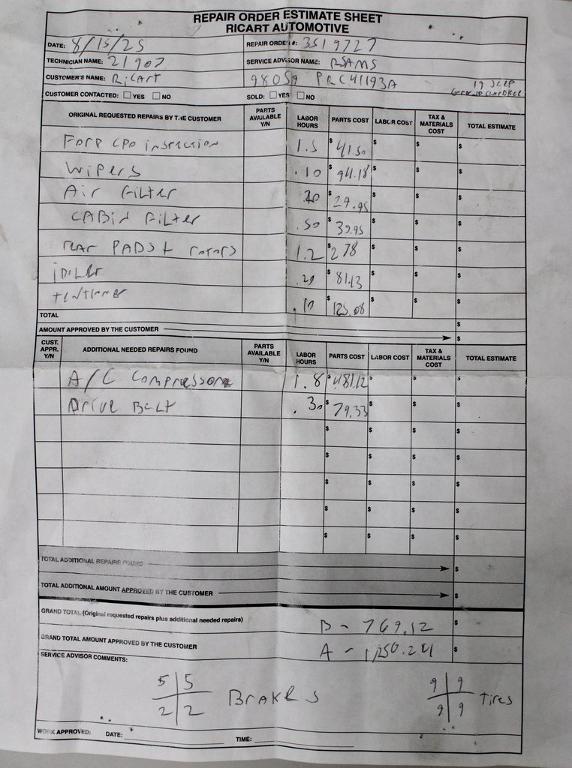 REPAIR ORDER ESTIMATE SHEET
RICART AUTOMOTIVE
DATE: 8/15/25 REPAIR ORDER #: 3519727
TECHNICIAN NAME: 21907 SERVICE ADVISOR NAME: RSAMS
CUSTOMER'S NAME: Ricart 98059 PRC41193A 19 JEEP
CUSTOMER CONTACTED: YES NO SOLD: YES NO
ORIGINAL REQUESTED REPAIRS BY THE CUSTOMER PARTS AVAILABLE Y/N LABOR HOURS PARTS COST LABOR COST TAX & MATERIALS COST TOTAL ESTIMATE
Ford CPO inspection 1.5 $ 41.50 $ $ $
Wipers .10 $ 94.18 $ $ $
Air Filter .20 $ 29.95 $ $ $
CABiN Filter .50 $ 39.95 $ $ $
rear PADS + rotors 1.2 $ 278 $ $ $
iDiLer .20 $ 81.13 $ $ $
tentioner .10 $ 125.08 $ $ $
TOTAL $
AMOUNT APPROVED BY THE CUSTOMER $
CUST. APPR. Y/N ADDITIONAL NEEDED REPAIRS FOUND PARTS AVAILABLE Y/N LABOR HOURS PARTS COST LABOR COST TAX & MATERIALS COST TOTAL ESTIMATE
A/C Compressor 1.8 $ 481.12 $ $ $
Drive Belt .30 $ 79.33 $ $ $
$ $ $ $
$ $ $ $
$ $ $ $
$ $ $ $
$ $ $ $
TOTAL ADDITIONAL REPAIRS FOUND $
TOTAL ADDITIONAL AMOUNT APPROVED BY THE CUSTOMER $
GRAND TOTAL (Original requested repairs plus additional needed repairs) B - 769.12 $
GRAND TOTAL AMOUNT APPROVED BY THE CUSTOMER A - 1,250.24 $
SERVICE ADVISOR COMMENTS:
5 5 9 9
2 2 BrakeS 9 9 Tires
WORK APPROVED: DATE: TIME: